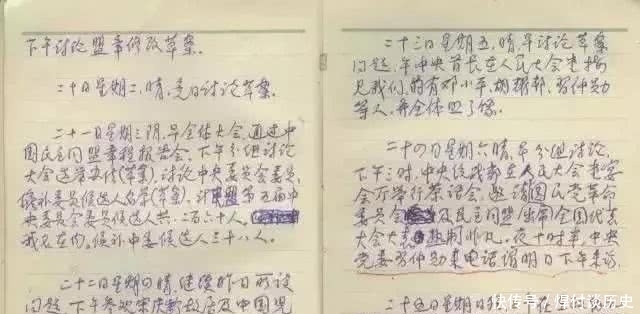 下午讨论盟章修改草案。
二十日星期二,晴,竟日讨论草案。
二十一日星期三阴,早全体大会,通过中
国民主同盟章程报告会,下午分组讨论
大会选举办法(草案),讨论中央委员会委员、
候补委员候选人名单(草案),计 盟第五届中
央委员会委员候选人共二百六十人。
我见在内。候补中委候选人三十八人。
二十二日星期四晴,继续昨日所议
问题,下午参观宋庆龄故居及中国儿
二十三日星期五,晴,早讨论草案
问题,午中央首长在人民大会堂接
见我们,的有邓小平,胡耀邦,习仲勋
等人,并全体照了像。
二十四日星期六晴,早分组讨论,
下午三时,中央统战部在人民大会堂宴
会厅举行茶话会,邀请国民党革命
委员会 及民主同盟出席全国代表
大会大 热制非凡。夜十时半,中央
党委习仲勋来电话,谓明日下午来访。
二十五日星期日
快传号/得付谈历史